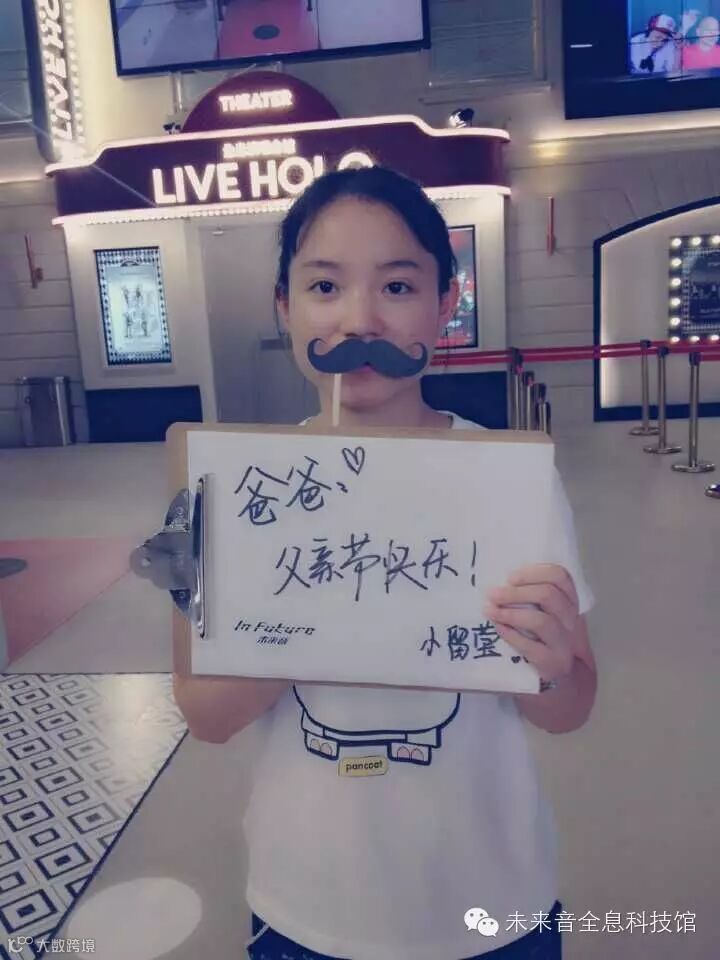 LIVE
THEATER
LIVE HOLO
爸爸：♡
父亲节快乐！
In Future
未来音
小留莹
pancoat
未来音全息科技馆
大数跨境